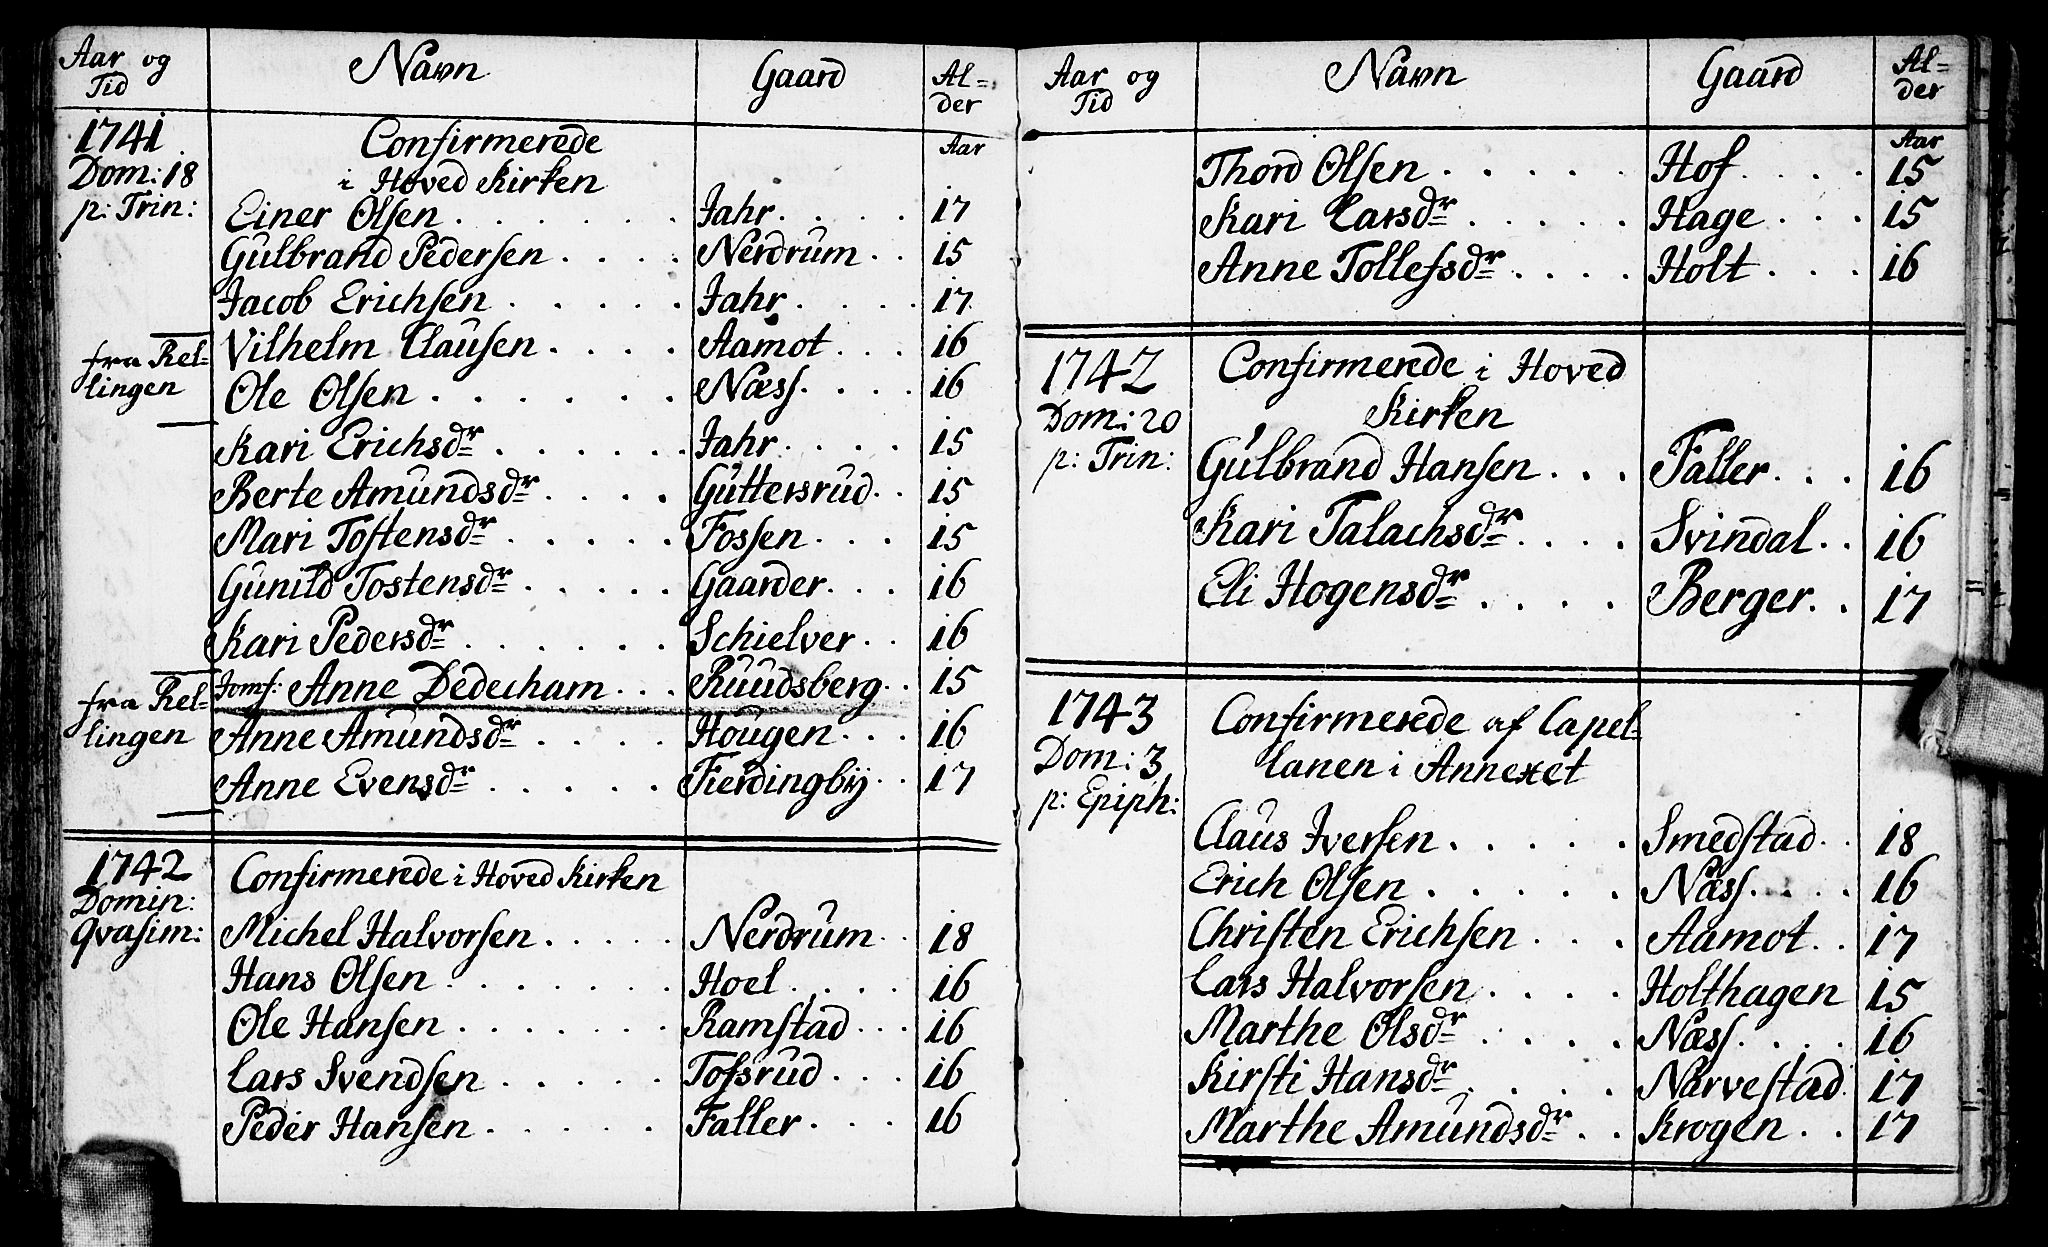 Aar og Tid | Navn | Gaard | Al-der
1741. | Confirmerede | | Aar
Dom: 18 | i Hoved Kirken
p: Trin: | Einer Olsen | Jahr | 17
Gulbrand Pedersen | Nerdrum | 15
Jacob Erichsen | Jahr | 17
fra Rel- | Vilhelm Clausen | Aamot | 16
lingen | Ole Olsen | Næss | 16
Kari Erichsdr | Jahr | 15
Berte Amundsdr | Guttersrud | 15
Mari Tostensdr | Fossen | 15
Gunild Tostensdr | Gaarder | 16
Kari Pedersdr | Schielver | 16
fra Rel- | Jomf: Anne Dedecham | Ruudsberg | 15
lingen | Anne Amundsdr | Hougen | 16
Anne Evensdr | Fierdingbÿ | 17
1742 | Confirmerede i Hoved Kirken
Domin:
Qvasim: | Michel Halvorsen | Nerdrum | 18
Hans Olsen | Hoel | 16
Ole Hansen | Ramstad | 16
Lars Svendsen | Tofsrud | 16
Peder Hansen | Faller | 16
Aar og Tid | Navn | Gaard | Al-der
Aar
Thord Olsen | Hof | 15
Kari Larsdr | Hage | 15
Anne Tollefsdr | Holt | 16
1742 | Confirmerede i Hoved
Dom: 20 | Kirken
p: Trin: | Gulbrand Hansen | Faller | 16
Kari Talachsdr | Svindal | 16
Eli Hogensdr | Berger | 17
1743 | Confirmerede af Capel-
Dom: 3 | lanen i Annexet
p: Epiph: | Claus Iversen | Smedstad | 18
Erich Olsen | Næss | 16
Christen Erichsen | Aamot | 17
Lars Halvorsen | Holthagen | 15
Marthe Olsdr | Næss | 16
Kirsti Hansdr | Narvestad | 17
Marthe Amundsdr | Krogen | 17